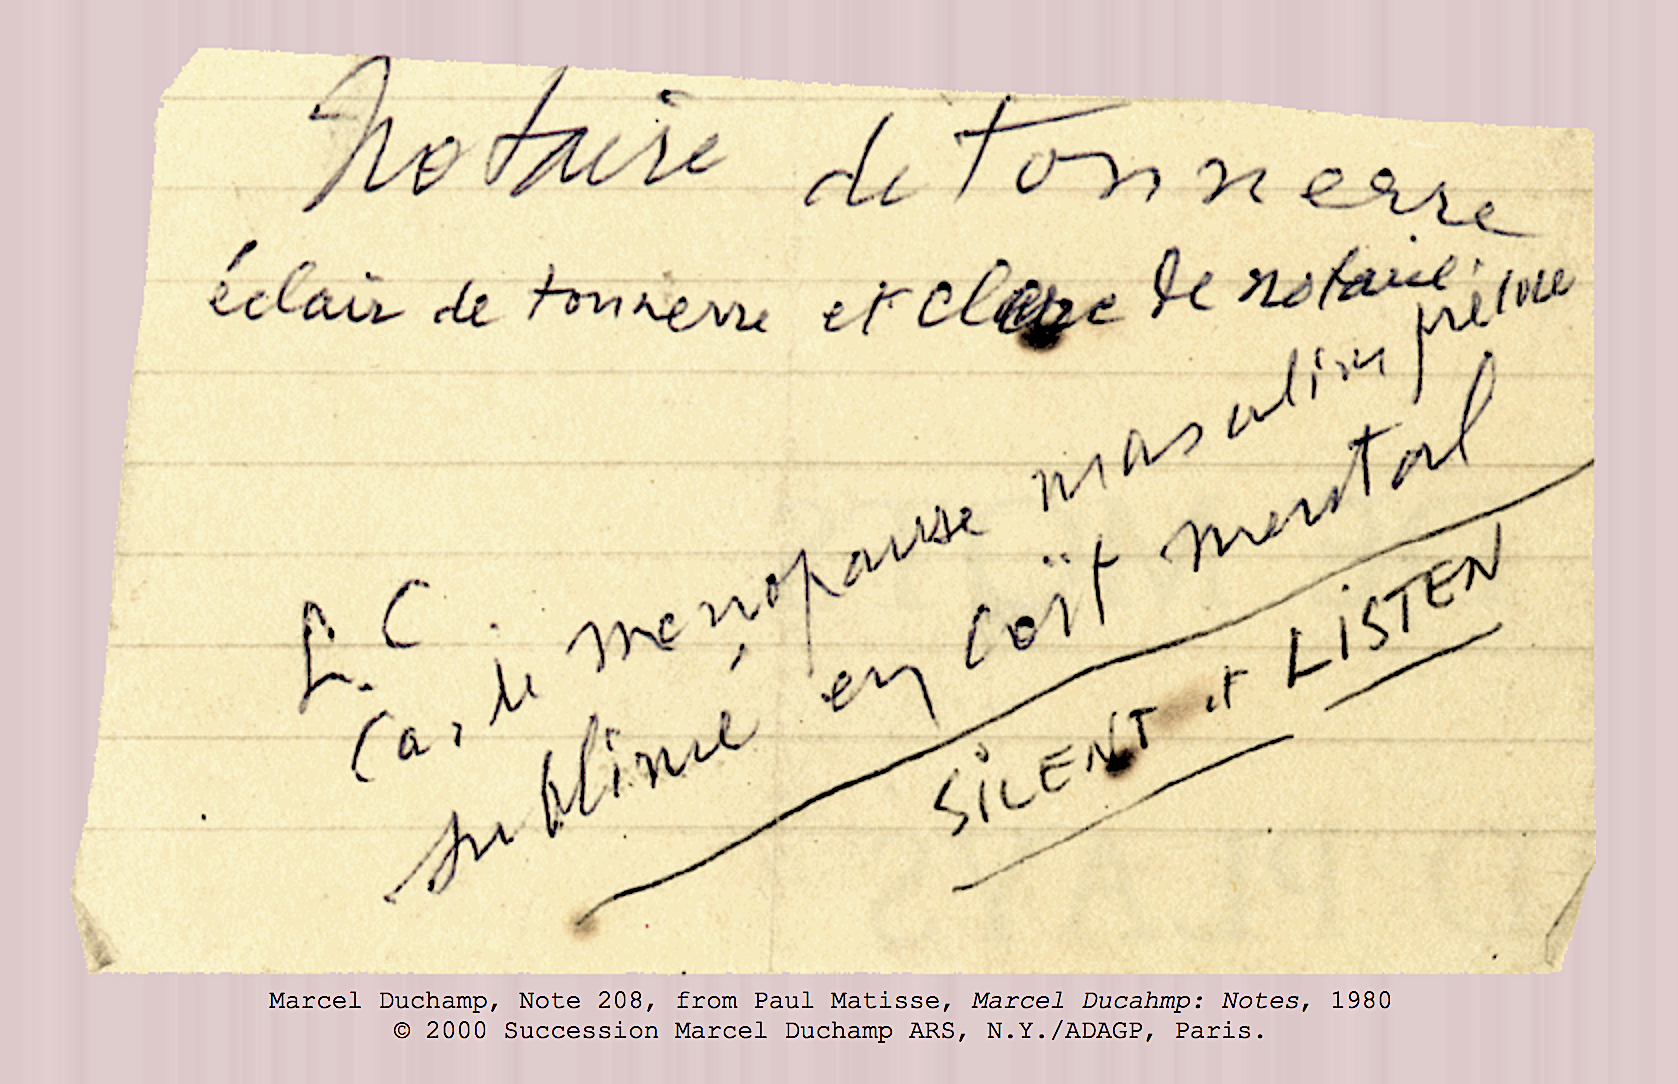 Notaire de tonnerre
éclair de tonnerre et clerc de notaire
L. C
Cas de ménopause masculin
sublimé en coït mental
SiLENT et LiSTEN
Marcel Duchamp, Note 208, from Paul Matisse, Marcel Ducahmp: Notes, 1980
© 2000 Succession Marcel Duchamp ARS, N.Y./ADAGP, Paris.